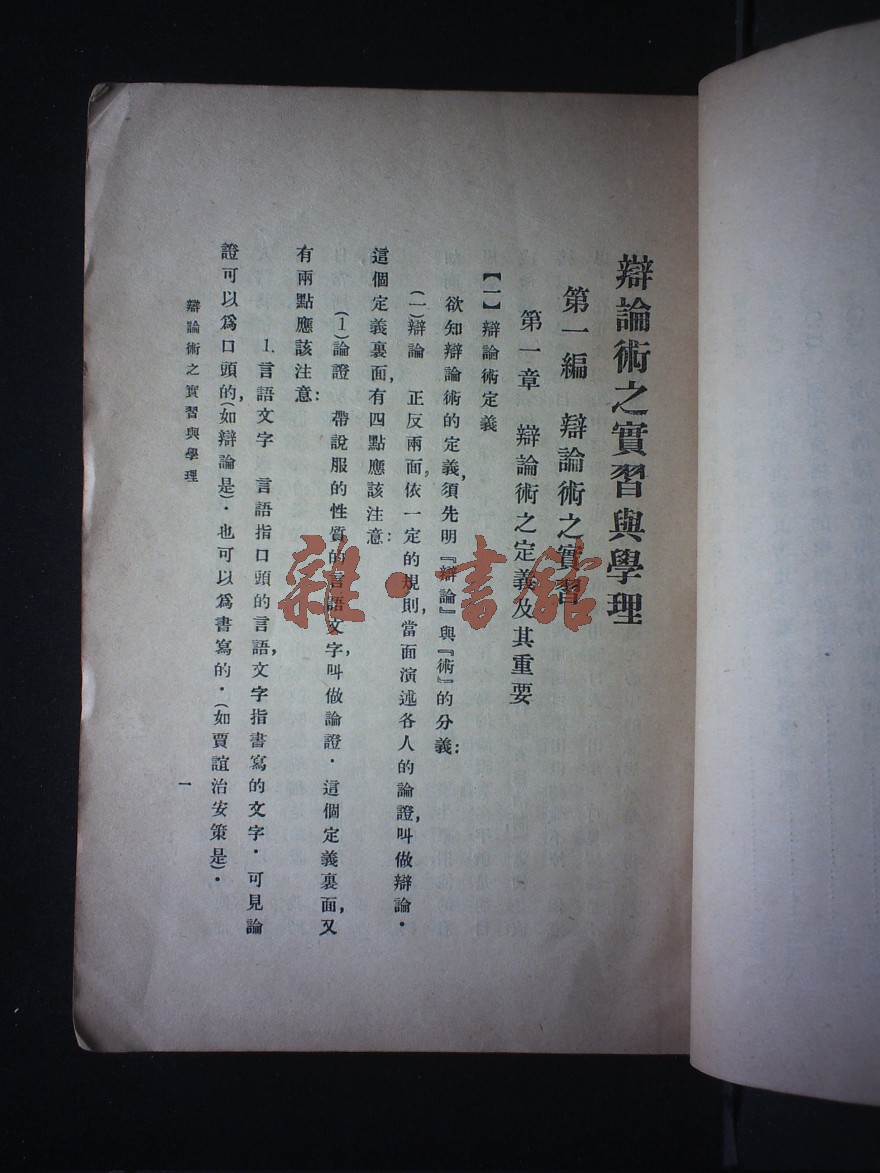 辯論術之實習與學理
第一編　辯論術之實習
第一章　辯論術之定義及其重要
【一】辯論術定義
欲知辯論術的定義，須先明『辯論』與『術』的分義：
（一）辯論　正反兩面，依一定的規則，當面演述各人的論證，叫做辯論．
這個定義裏面，有四點應該注意：
（1）論證　帶說服的性質的言語文字，叫做論證．這個定義裏面，又
有兩點應該注意：
1. 言語文字　言語指口頭的言語，文字指書寫的文字．可見論
證可以爲口頭的，（如辯論是）．也可以爲書寫的．（如賈誼治安策是）．
辯論術之實習與學理
一
雜·書館